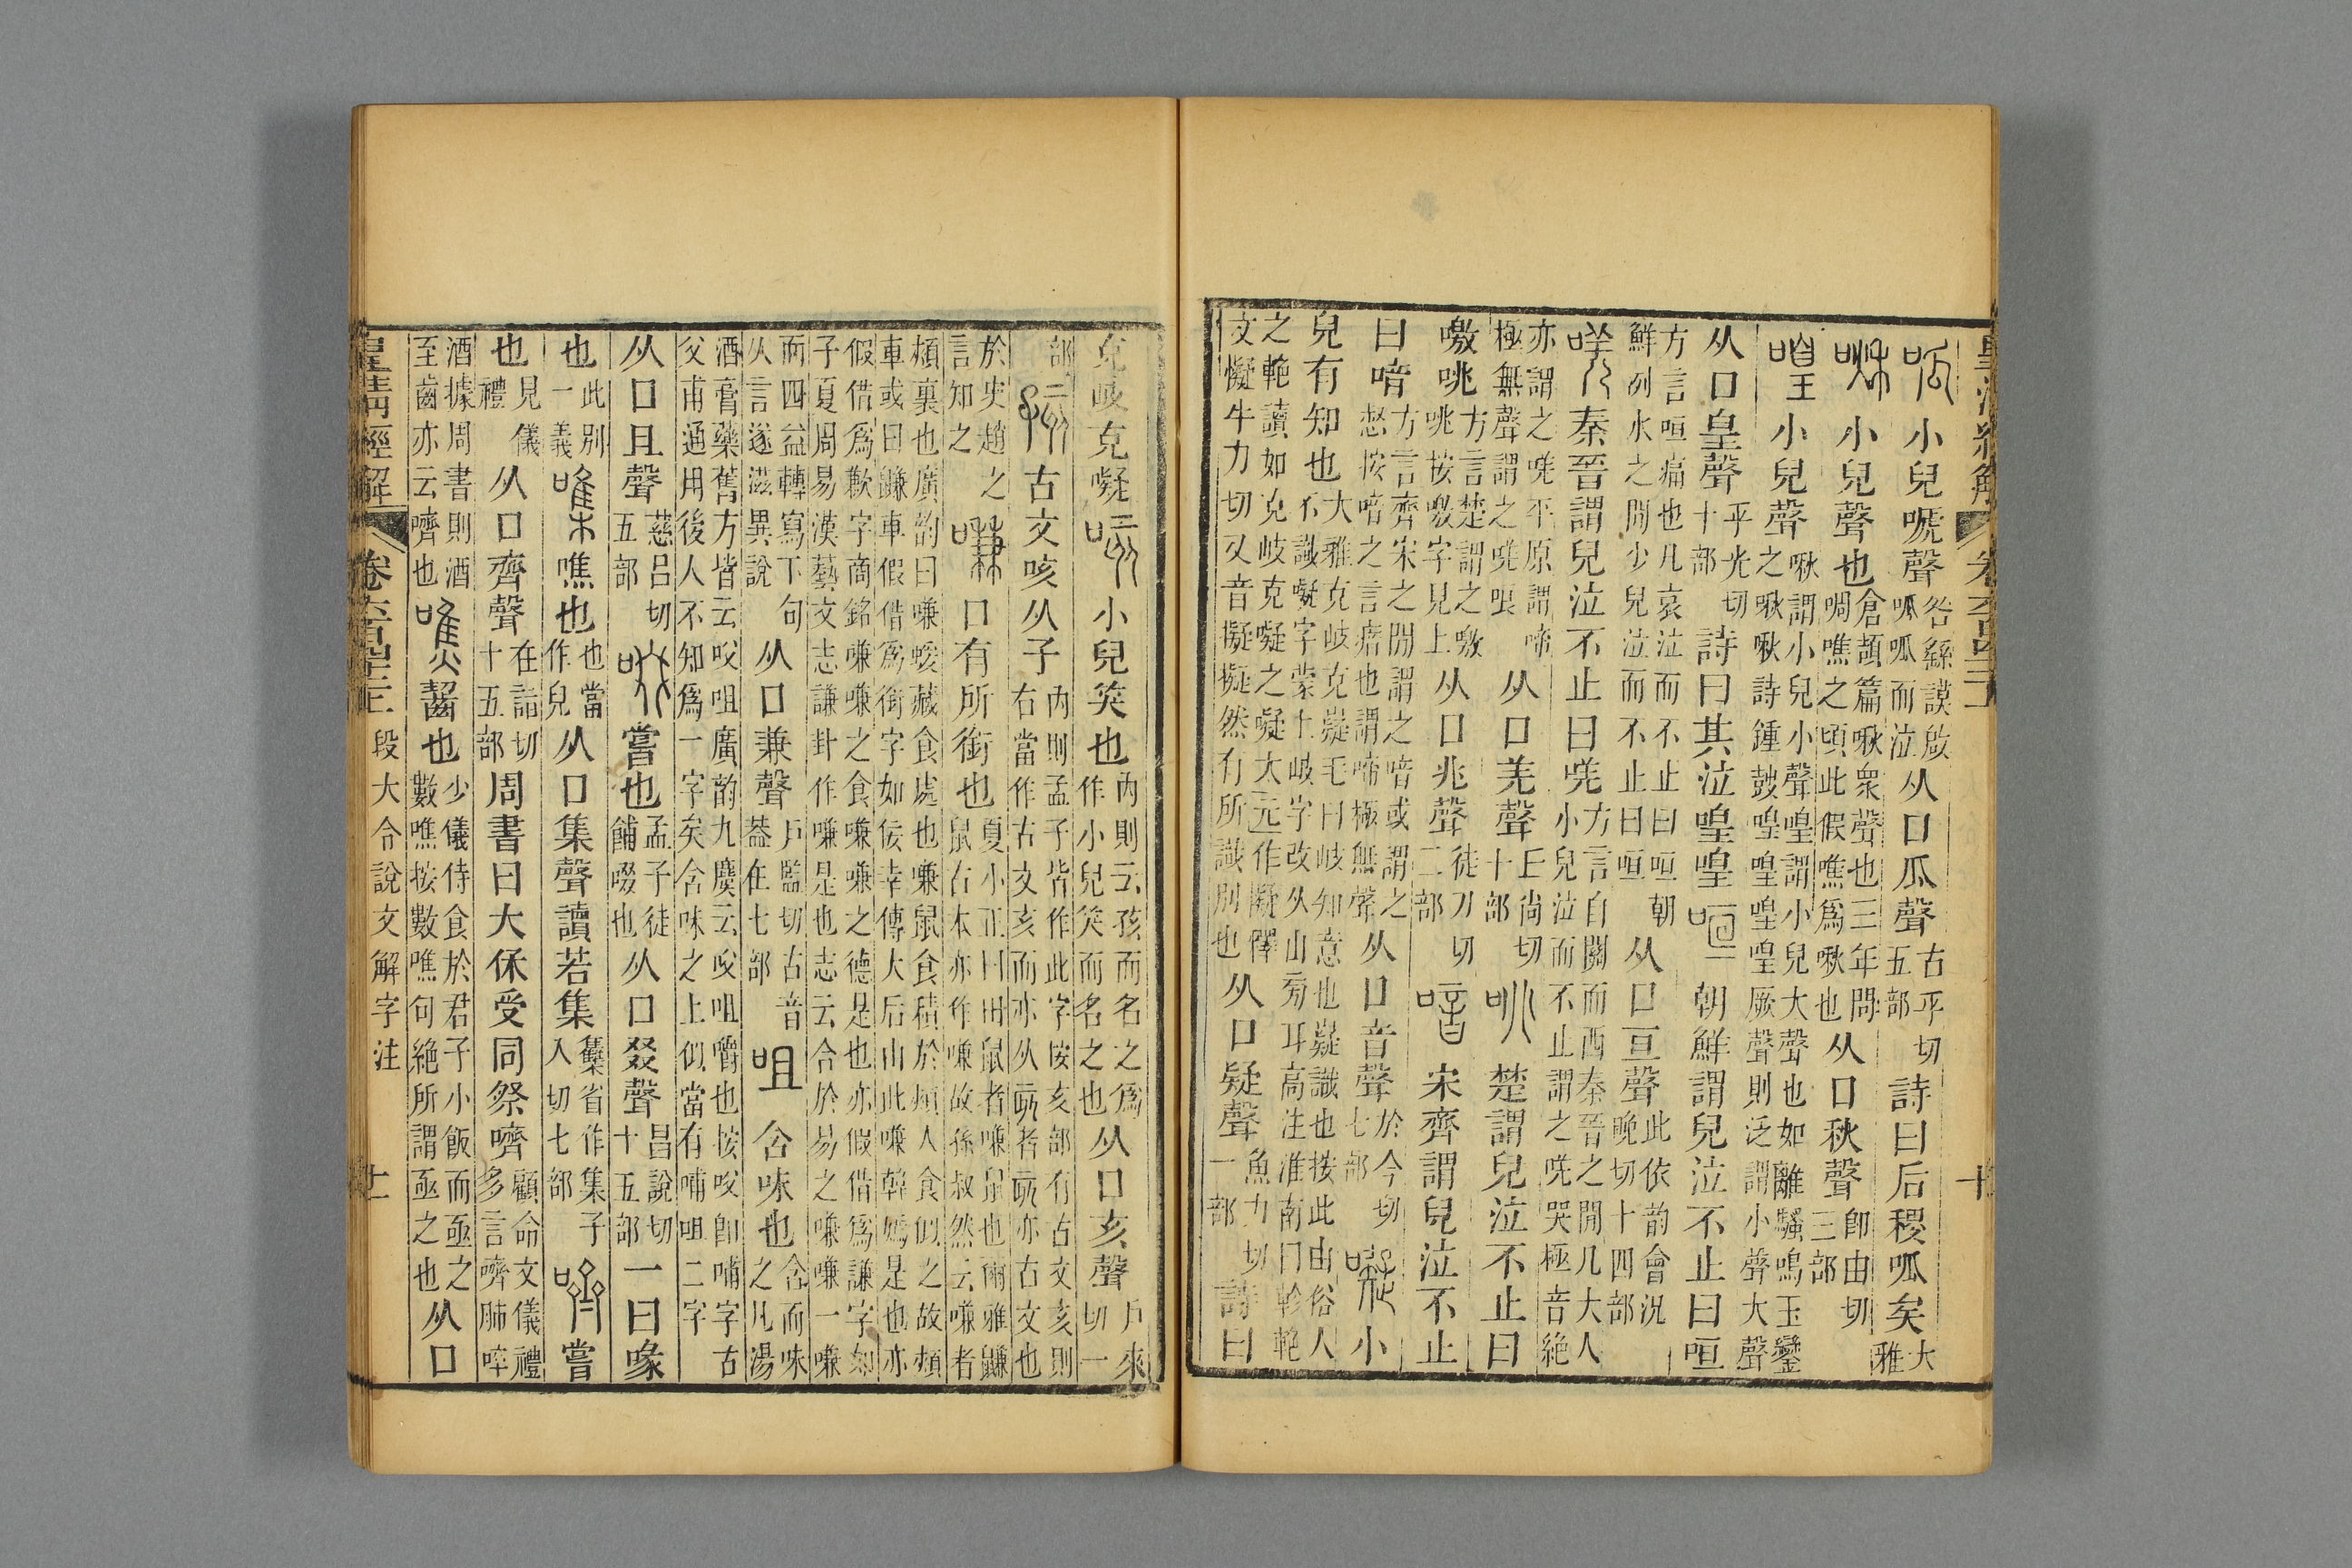 呱小兒嗁聲咎繇謨啟呱呱而泣从口瓜聲古乎切五部詩曰后稷呱矣大雅
啾小兒聲也倉頡篇啾衆聲也三年問啁噍之頃此假噍爲啾也从口秋聲卽由切三部
喤小兒聲啾謂小兒小聲喤謂小兒大聲也如離騷鳴玉鑾之啾啾詩鍾鼓喤喤喤喤厥聲則泛謂小聲大聲
从口皇聲平光切十部詩曰其泣喤喤咺朝鮮謂兒泣不止曰咺
方言咺痛也凡哀泣而不止曰咺朝鮮洌水之閒少兒泣而不止曰咺从口亘聲此依韵會況晚切十四部
唴秦晉謂兒泣不止曰唴方言自關而西秦晉之閒凡大人小兒泣而不止謂之唴哭極音絕
亦謂之唴平原謂啼極無聲謂之唴哴从口羌聲丘尚切十部咷楚謂兒泣不止曰
噭咷方言楚謂之噭咷按噭字見上从口兆聲徒刀切二部喑宋齊謂兒泣不止
曰喑方言齊宋之閒謂之喑或謂之惄按喑之言瘖也謂啼極無聲从口音聲於今切七部㘈小
兒有知也大雅克岐克嶷毛曰岐知意也嶷識也按此由俗人不識㘈字蒙上岐字改从山旁耳高注淮南曰軫䡄
之䡄讀如克岐克㘈之㘈大元作儗儸文儗牛力切又音擬擬然有所識別也从口疑聲魚力切一部詩曰
克岐克㘈咳小兒笑也內則云孩而名之爲作小兒笑而名之也从口亥聲戶來切一
部孩古文咳从子內則孟子皆作此字按亥部有古文亥則右當作古文亥而亦从𠅏者𠅏亦古文也
於㕜趙之言知之嗛口有所銜也夏小正曰田鼠者嗛鼠也爾雅鼸鼠古本亦作嗛故孫叔然云嗛者
頰裏也廣韵曰嗛猨藏食處也嗛鼠食積於頰人食似之故頰車或曰鼸車假借爲銜字如佞幸傳大后由此嗛韓嫣是也亦
假借爲歉字商銘嗛嗛之食嗛嗛之德是也亦假借爲謙字如子夏周易漢藝文志謙卦作嗛是也志云合於易之嗛嗛一嗛
而四益轉寫下句从言遂滋異說从口兼聲戶監切古音葢在七部咀含味也含而味之凡湯
酒膏藥舊方皆云㕮咀廣韵九麌云㕮咀嚼也按㕮卽哺字古父甫通用後人不知爲一字矣含味之上似當有哺咀二字
从口且聲慈呂切五部啜嘗也孟子徒餔啜也从口叕聲昌說切十五部一曰喙
也此別一義㗱噍也也當作皃从口集聲讀若集集省作集子入切七部嚌嘗
也見儀禮从口齊聲在詣切十五部周書曰大保受同祭嚌顧命文儀禮多言嚌肺啐
酒據周書則酒至齒亦云嚌也噍齧也少儀侍食於君子小飯而亟之數噍按數噍句絕所謂亟之也从口
皇清經解 卷六百四十二 段大令說文解字注 十一